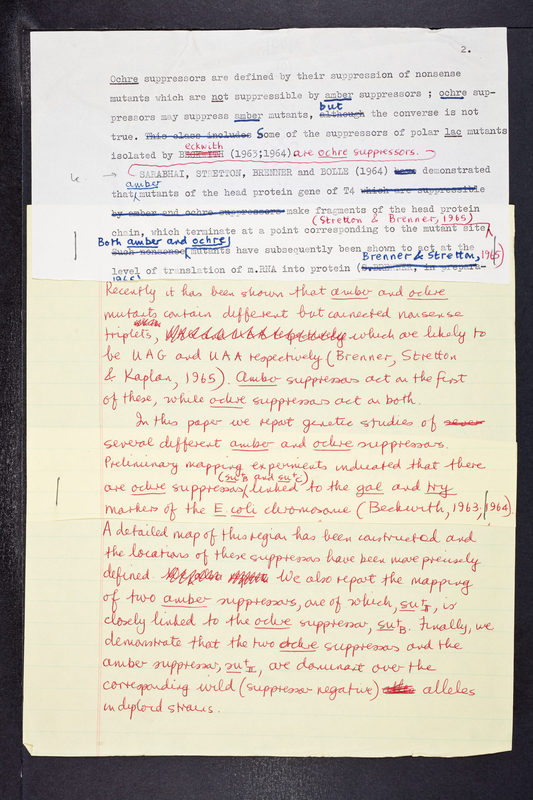 2.
Ochre suppressors are defined by their suppression of nonsense
mutants which are not suppressible by amber suppressors ; ochre sup-
pressors may suppress amber mutants, although but the converse is not
true. This class includes Some of the suppressors of polar lac mutants
isolated by eckwith (1963;1964) are ochre suppressors.
SARABHAI, STRETTON, BRENNER and BOLLE (1964) demonstrated
that amber mutants of the head protein gene of T4 which are suppressible
by amber and ochre suppressors make fragments of the head protein
(Stretton & Brenner, 1965)
chain, which terminate at a point corresponding to the mutant site
Both amber and ochre
Such nonsense mutants have subsequently been shown to act at the
Brenner & Stretton, 1965)
level of translation of m.RNA into protein ( in prepara-
1965)
Recently it has been shown that amber and ochre
mutants contain different but connected nonsense
triplets, which are likely to
be UAG and UAA respectively (Brenner, Stretton
& Kaplan, 1965). Amber suppressors act on the first
of these, while ochre suppressors act on both.
In this paper we report genetic studies of sever
several different amber and ochre suppressors.
Preliminary mapping experiments indicated that there
(su+B and su+C)
are ochre suppressors linked to the gal and try
markers of the E. coli chromosome (Beckwith, 1963, 1964).
A detailed map of this region has been constructed and
the locations of these suppressors have been more precisely
defined We also report the mapping
of two amber suppressors, one of which, su+II, is
closely linked to the ochre suppressor, su+B. Finally, we
demonstrate that the two ochre suppressors and the
amber suppressor, su+II, are dominant over the
corresponding wild (suppressor negative) alleles
in diploid strains.